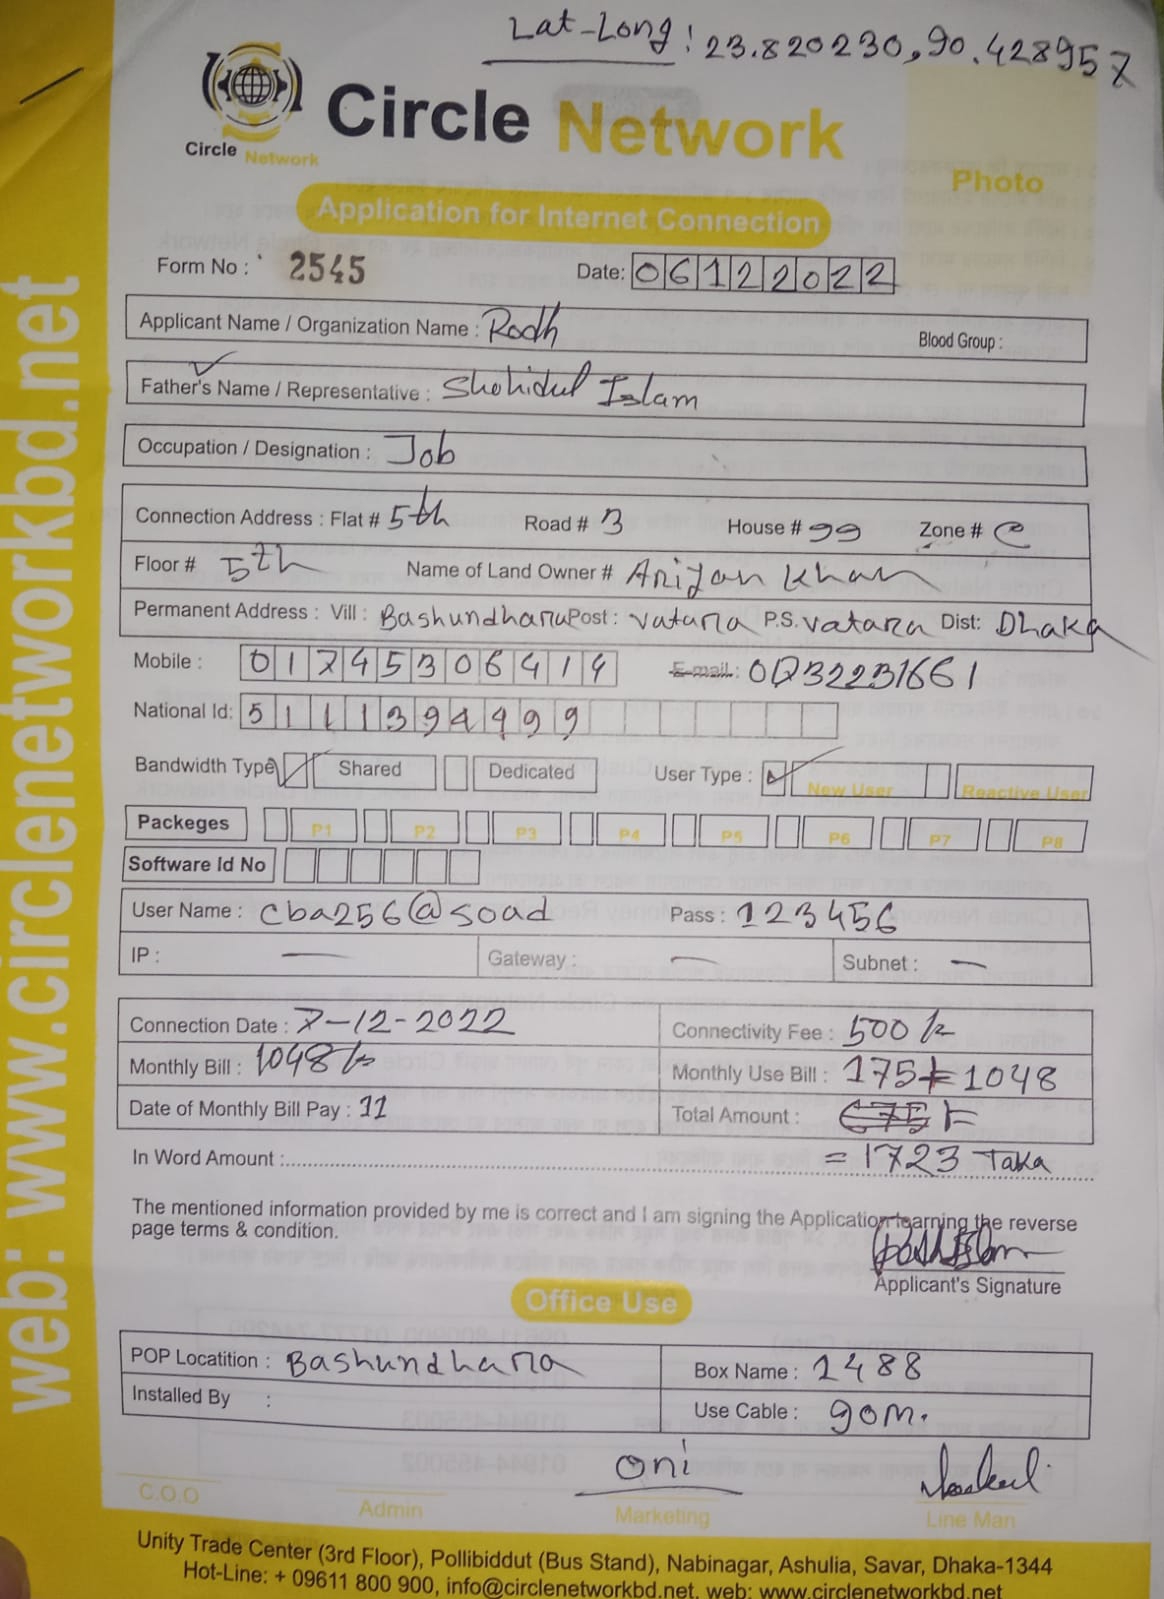 Lat-Long: 23.820230, 90.428957
Circle Network
Circle Network
Photo
Application for Internet Connection
Form No : 2545 Date: 06122022
Applicant Name / Organization Name : Rodh Blood Group :
Father's Name / Representative : Shohidul Islam
Occupation / Designation : Job
Connection Address : Flat # 5th Road # 3 House # 99 Zone # C
Floor # 5th Name of Land Owner # Ariyan Khan
Permanent Address : Vill : Bashundhara Post : Vatara P.S. Vatara Dist: Dhaka
Mobile : 01745306414 E-mail : 01323231661
National Id: 5111394499
Bandwidth Type Shared Dedicated User Type : New User Reactive User
Packeges P1 P2 P3 P4 P5 P6 P7 P8
Software Id No
User Name : cba256@soad Pass : 123456
IP : — Gateway : — Subnet : —
Connection Date : 7-12-2022 Connectivity Fee : 500
Monthly Bill : 1048 Monthly Use Bill : 175+1048
Date of Monthly Bill Pay : 11 Total Amount : 675
In Word Amount : = 1723 Taka
The mentioned information provided by me is correct and I am signing the Application tearning the reverse
page terms & condition.
Applicant's Signature
Office Use
POP Locatition : Bashundhara Box Name : 1488
Installed By : Use Cable : 90m.
oni
C.O.O Admin Marketing Line Man
Unity Trade Center (3rd Floor), Pollibiddut (Bus Stand), Nabinagar, Ashulia, Savar, Dhaka-1344
Hot-Line: + 09611 800 900, info@circlenetworkbd.net, web: www.circlenetworkbd.net
web: www.circlenetworkbd.net